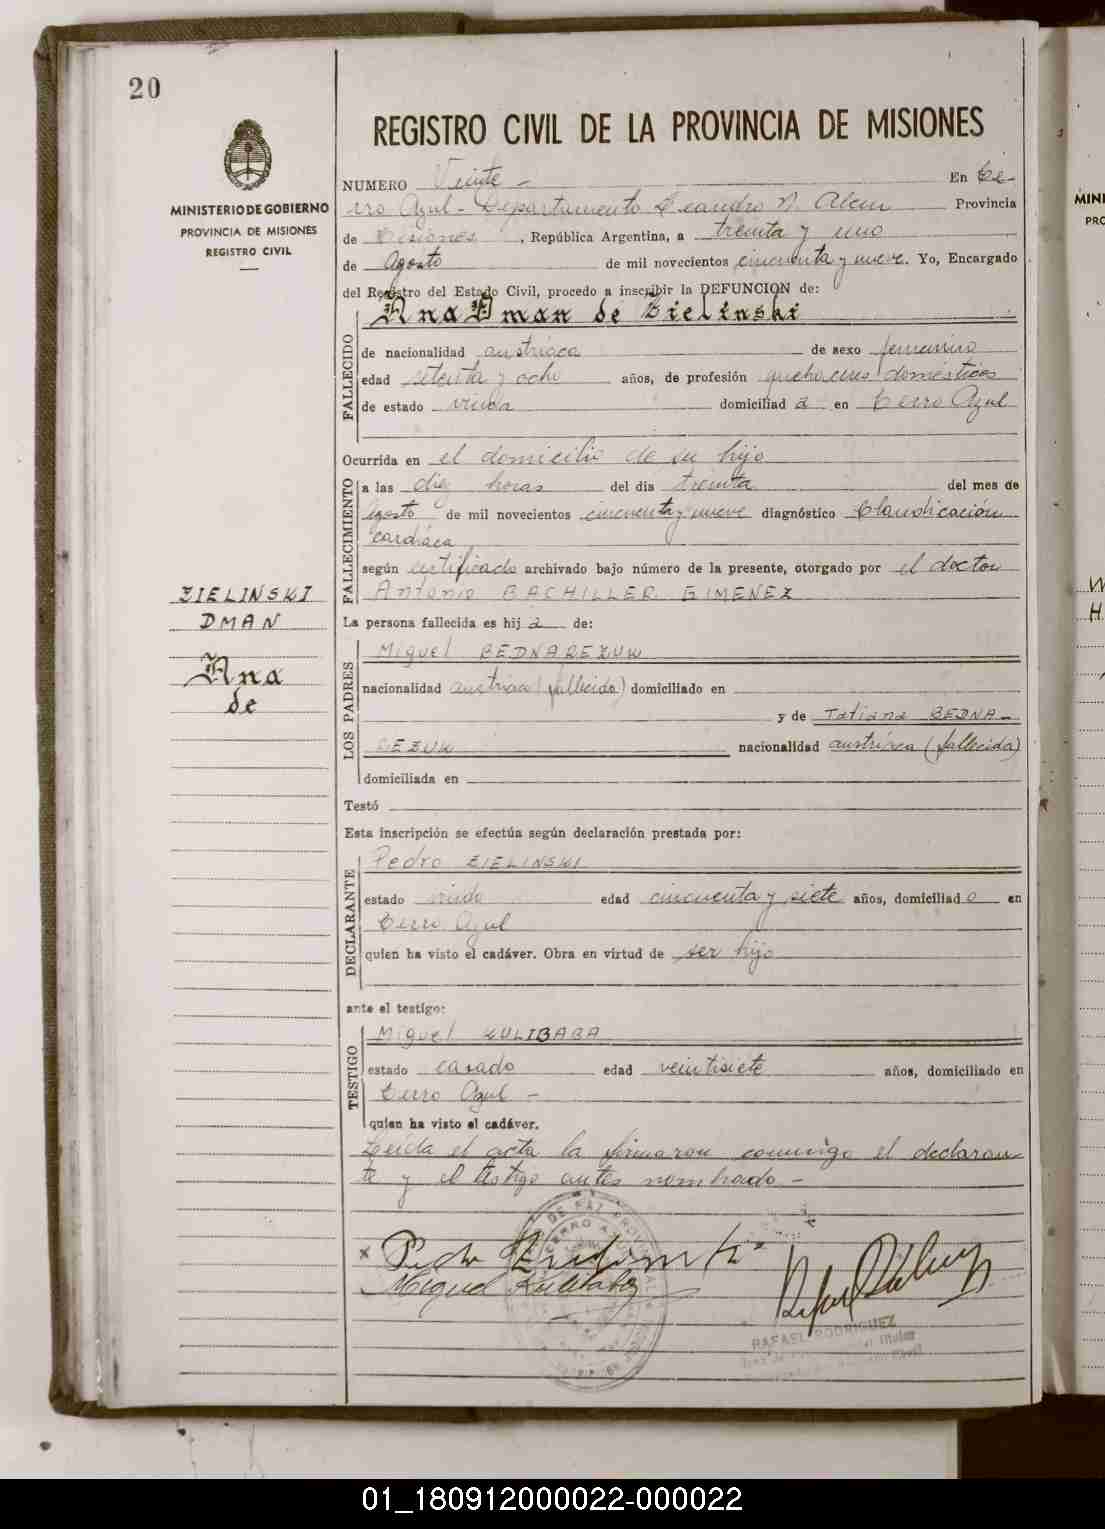 20
MINISTERIO DE GOBIERNO
PROVINCIA DE MISIONES
REGISTRO CIVIL
ZIELINSKI
DMAN
Ana
de
REGISTRO CIVIL DE LA PROVINCIA DE MISIONES
NUMERO Veinte - En Ce-
rro Azul - Departamento Leandro N. Alem Provincia
de Misiones, República Argentina, a treinta y uno
de Agosto de mil novecientos cincuenta y nueve. Yo, Encargado
del Registro del Estado Civil, procedo a inscribir la DEFUNCION de:
Ana Dman de Zielinski
FALLECIDO
de nacionalidad austríaca de sexo femenino
edad setenta y ocho años, de profesión quehaceres domésticos
de estado viuda domiciliad a en Cerro Azul
Ocurrida en el domicilio de su hijo
FALLECIMIENTO
a las diez horas del dia treinta del mes de
Agosto de mil novecientos cincuenta y nueve diagnóstico Claudicación
cardíaca
según certificado archivado bajo número de la presente, otorgado por el doctor
Antonio BACHILLER GIMENEZ
La persona fallecida es hij a de:
LOS PADRES
Miguel BEDNAREZUK
nacionalidad austríaca (fallecido) domiciliado en
y de Tatiana BEDNA-
REZUK nacionalidad austríaca (fallecida)
domiciliada en
Testó
Esta inscripción se efectúa según declaración prestada por:
DECLARANTE
Pedro ZIELINSKI
estado viudo edad cincuenta y siete años, domiciliad o en
Cerro Azul
quien ha visto el cadáver. Obra en virtud de ser hijo
ante el testigo:
TESTIGO
Miguel KULIBABA
estado casado edad veintisiete años, domiciliado en
Cerro Azul -
quien ha visto el cadáver.
Leída el acta la firmaron conmigo el declaran-
te y el testigo antes nombrado -
x Pedro
Miguel Kulibaba
RAFAEL RODRIGUEZ
MINI
PRO
01_180912000022-000022